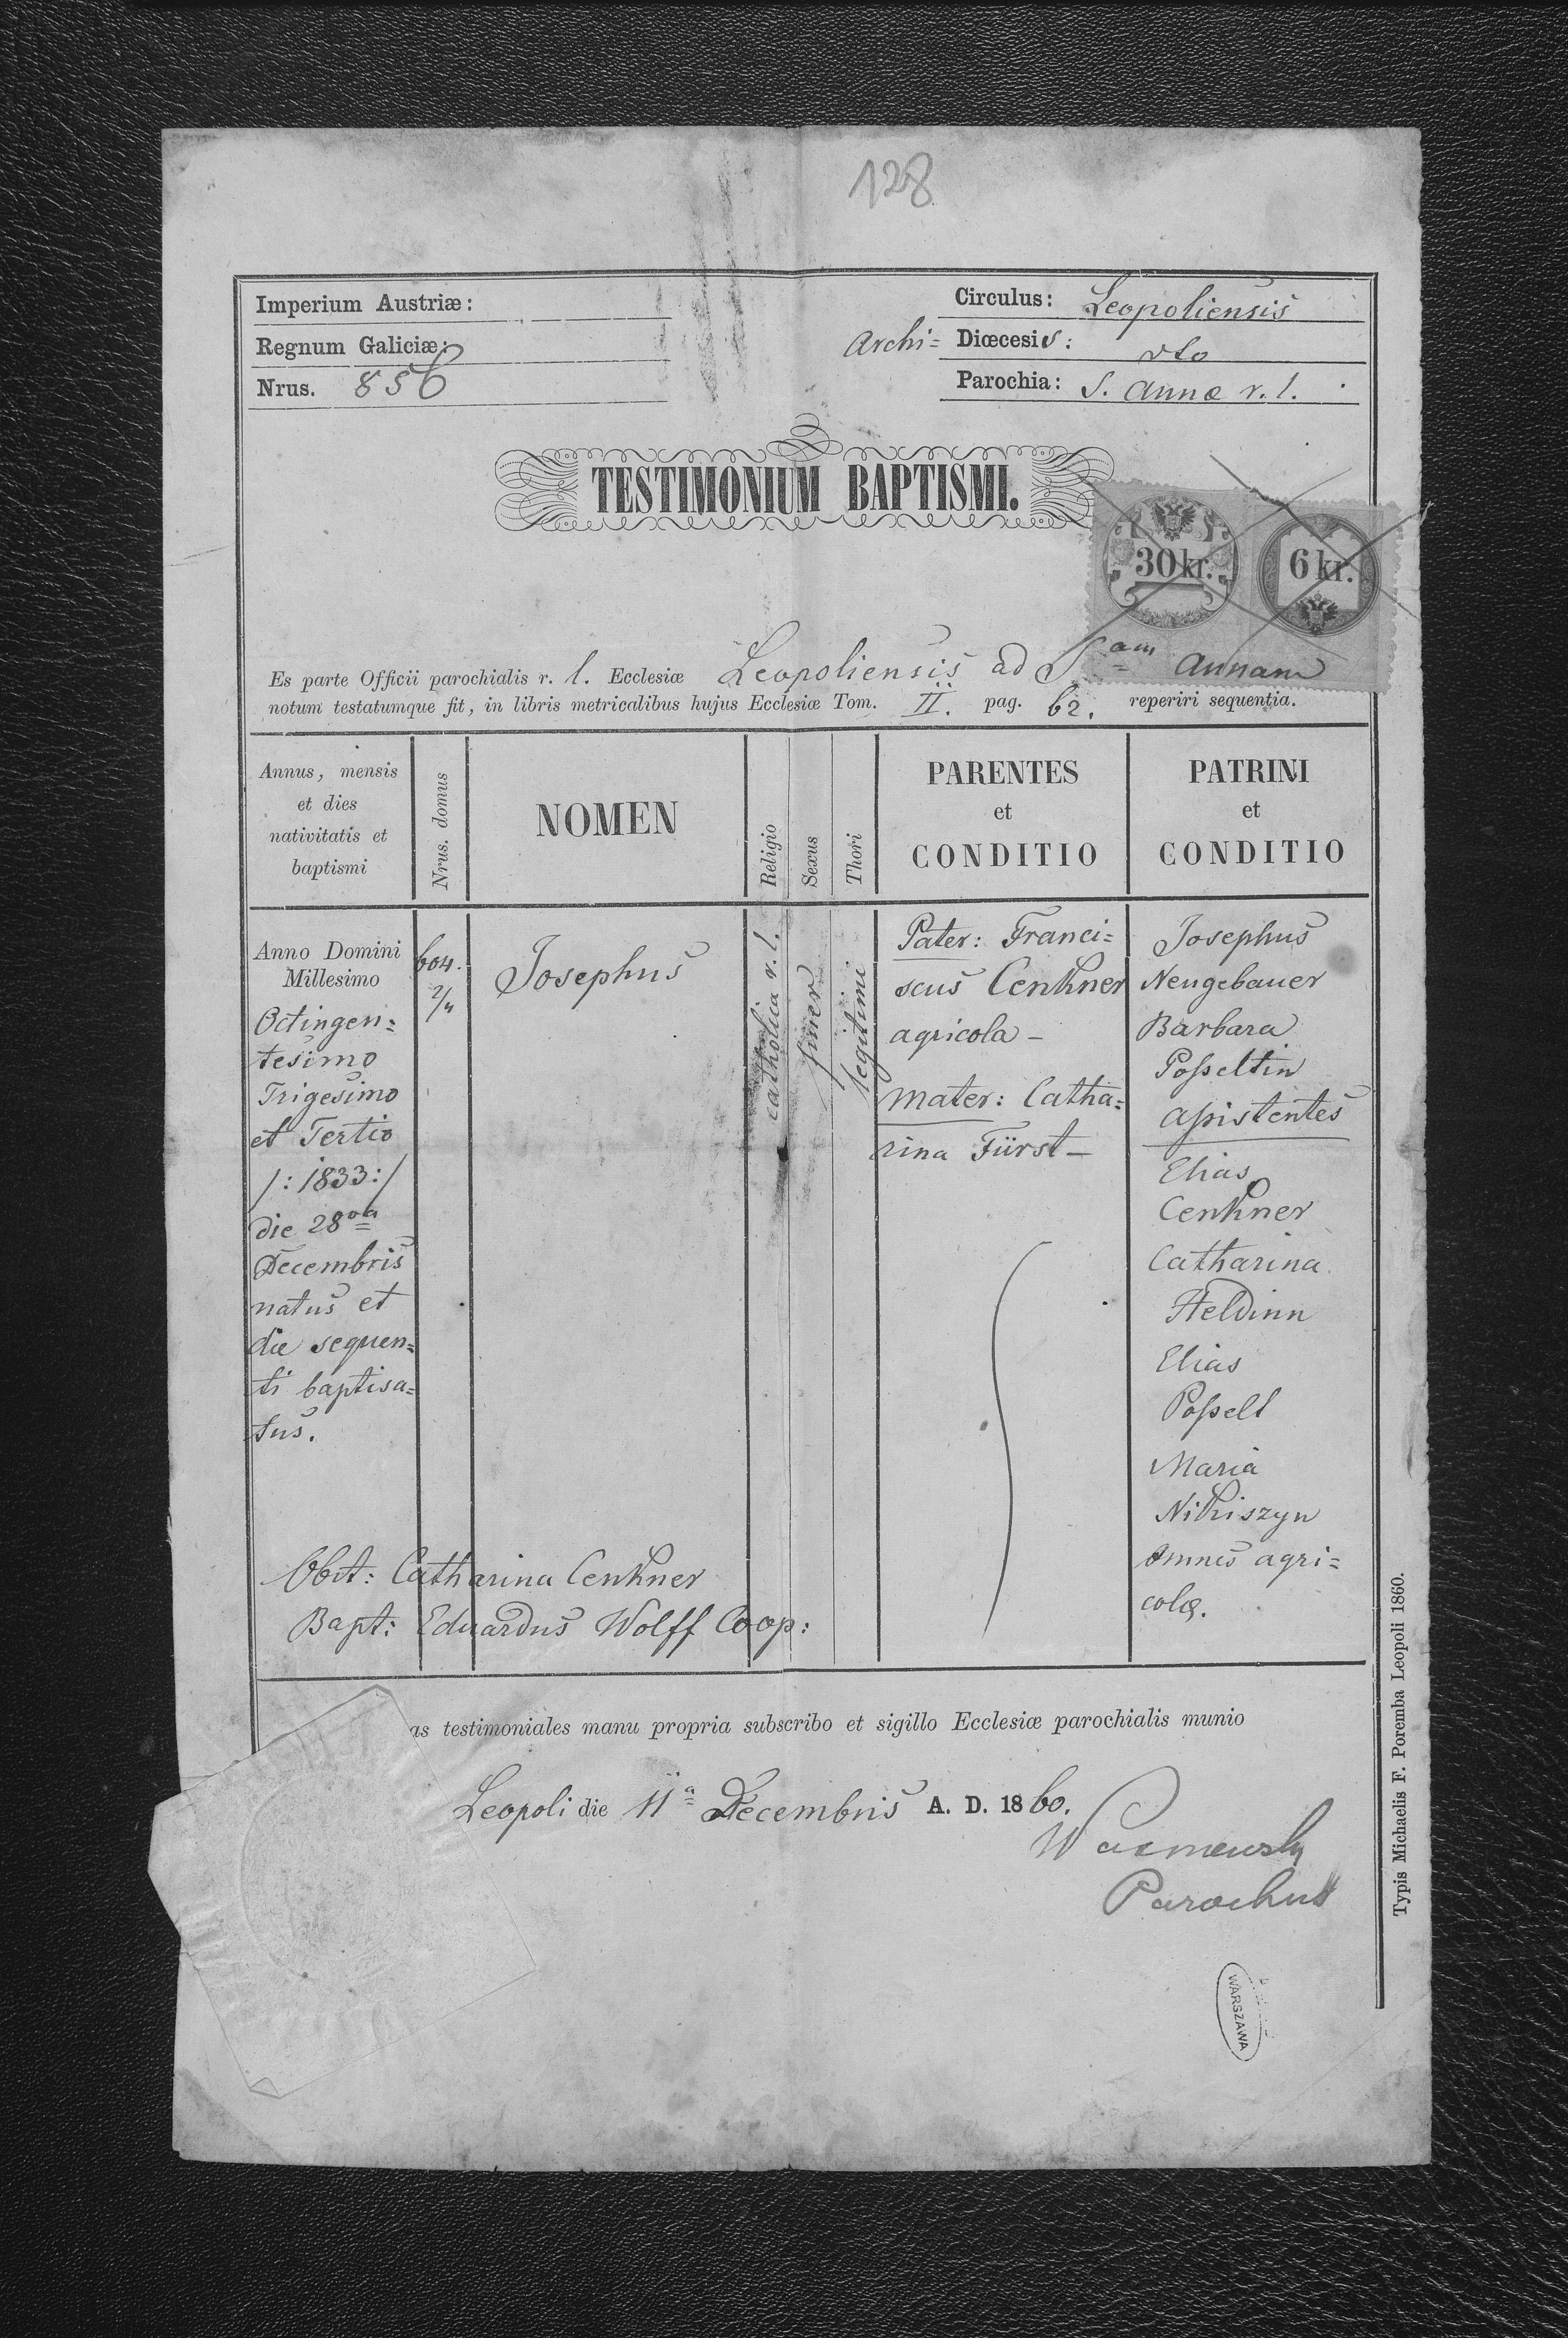 128
Imperium Austriæ:
Regnum Galiciæ:
Nrus. 856
Circulus: Leopoliensis
Archi= Diœcesis: dto
Parochia: S. Annæ r. l.
TESTIMONIUM BAPTISMI.
30 kr.
6 kr.
Es parte Officii parochialis r. l. Ecclesiæ Leopoliensis ad S am Annam
notum testatumque fit, in libris metricalibus hujus Ecclesiæ Tom. II. pag. 62. reperiri sequentia.
Annus, mensis
et dies
nativitatis et
baptismi
Nrus. domus
NOMEN
Religio
Sexus
Thori
PARENTES
et
CONDITIO
PATRINI
et
CONDITIO
Anno Domini
Millesimo
Octingen=
tesimo
Trigesimo
et Tertio
/: 1833 :/
die 28va
Decembris
natus et
die sequen=
ti baptisa=
tus.
604.
2/4
Josephus
catholica r. l.
puer
legitimi
Pater: Franci=
scus Cenkner
agricola –
Mater: Catha=
rina Fürst –
Josephus
Neugebauer
Barbara
Poſseltin
aſsistentes
Elias
Cenkner
Catharina
Heldinn
Elias
Poſselt
Maria
Nikiszyn
omnes agri=
colæ.
Obst: Catharina Cenkner
Bapt: Eduardus Wolff Coop:
as testimoniales manu propria subscribo et sigillo Ecclesiæ parochialis munio
Leopoli die 11a Decembris A. D. 1860.
Parochus
WARSZAWA
Typis Michaelis F. Poremba Leopoli 1860.